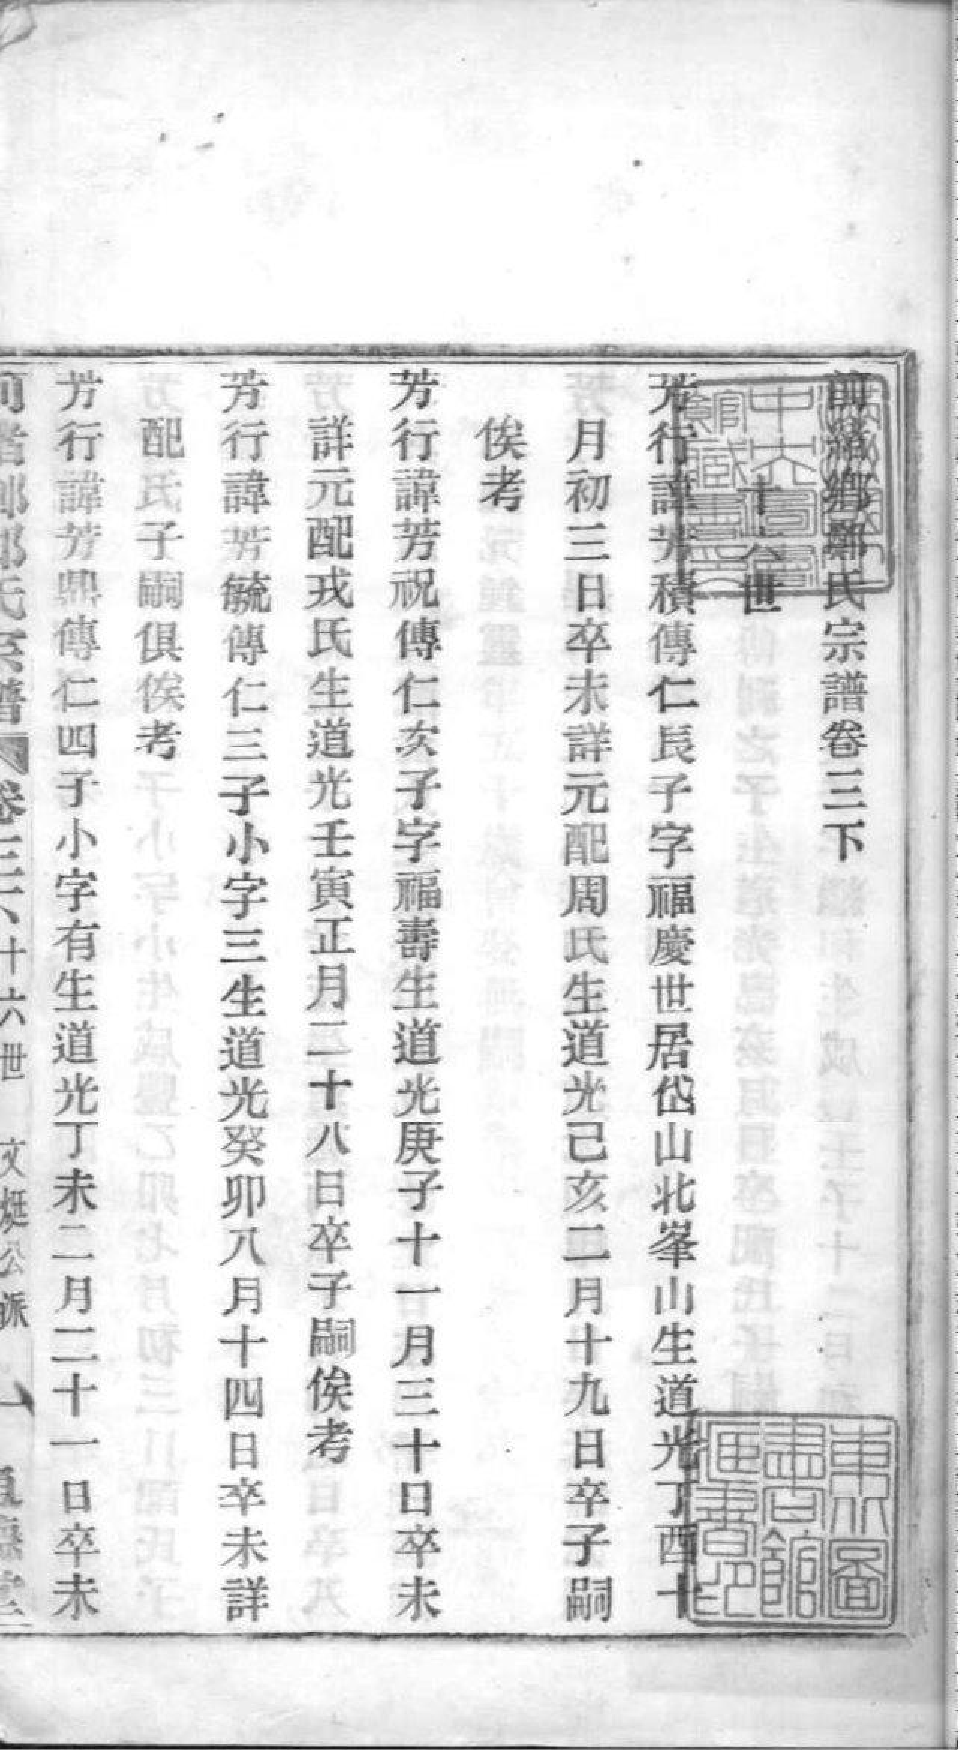 前緒鄉鄭氏宗譜卷三下
十六世
芳行諱芳積傳仁長子字福慶世居岱山北峯山生道光丁酉十
月初三日卒未詳元配周氏生道光己亥二月十九日卒子嗣
俟考
芳行諱芳祝傳仁次子字福壽生道光庚子十一月三十日卒未
詳元配戎氏生道光壬寅正月二十八日卒子嗣俟考
芳行諱芳毓傳仁三子小字三生道光癸卯八月十四日卒未詳
配氏子嗣俱俟考
芳行諱芳鼎傳仁四子小字有生道光丁未二月二十一日卒未
氏宗譜 卷三下 十六世 文 公派 一